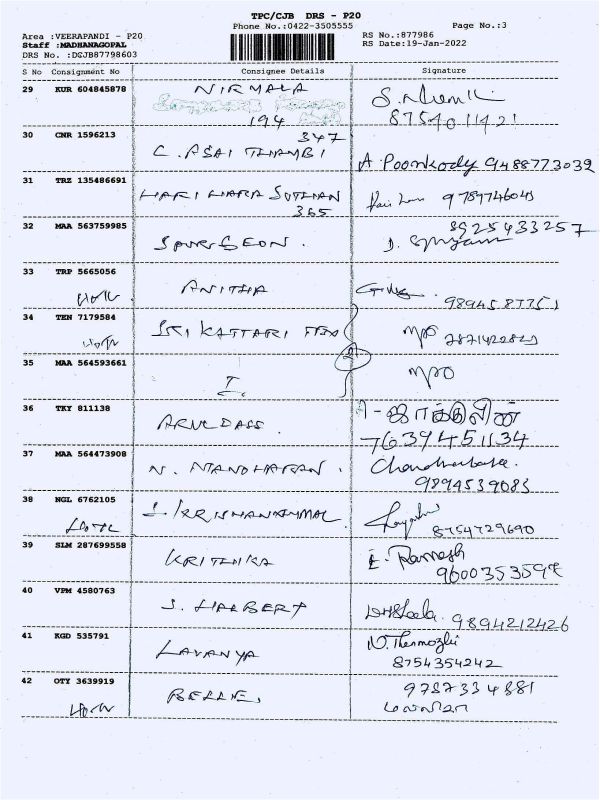 TPC/CJB DRS - P20
Phone No.:0422-3505555 Page No.:3
Area :VEERAPANDI - P20 RS No.:877986
Staff :MADHANAGOPAL RS Date:19-Jan-2022
DRS No. :DGJB87798603
S No Consignment No Consignee Details Signature
29 KUR 604845878 NIRMALA
194 8754011421
347
30 CNR 1596213 C. ASAI THAMBI A. Poonkody 9488773039
31 TRZ 135486691 HARI HARA SUTHAN
365
32 MAA 563759985 SPURGEON. 8925433257
33 TRP 5665056 ANITHA
9894587751
34 TEN 7179584 SRI KATTARI
35 MAA 564593661 I
36 TKY 811138 ARULDASS
7639451134
37 MAA 564473908 N. MANOHARAN.
9894539083
38 NGL 6762105 I. KRISHNAMMAL
8754729690
39 SLM 287699558 KRITHIKA E. Ramesh
40 VPM 4580763 J. HALBERT 9894212426
41 KGD 535791 LAVANYA N. Thenmozhi
8754354242
42 OTY 3639919 BELLIE. 9787334881